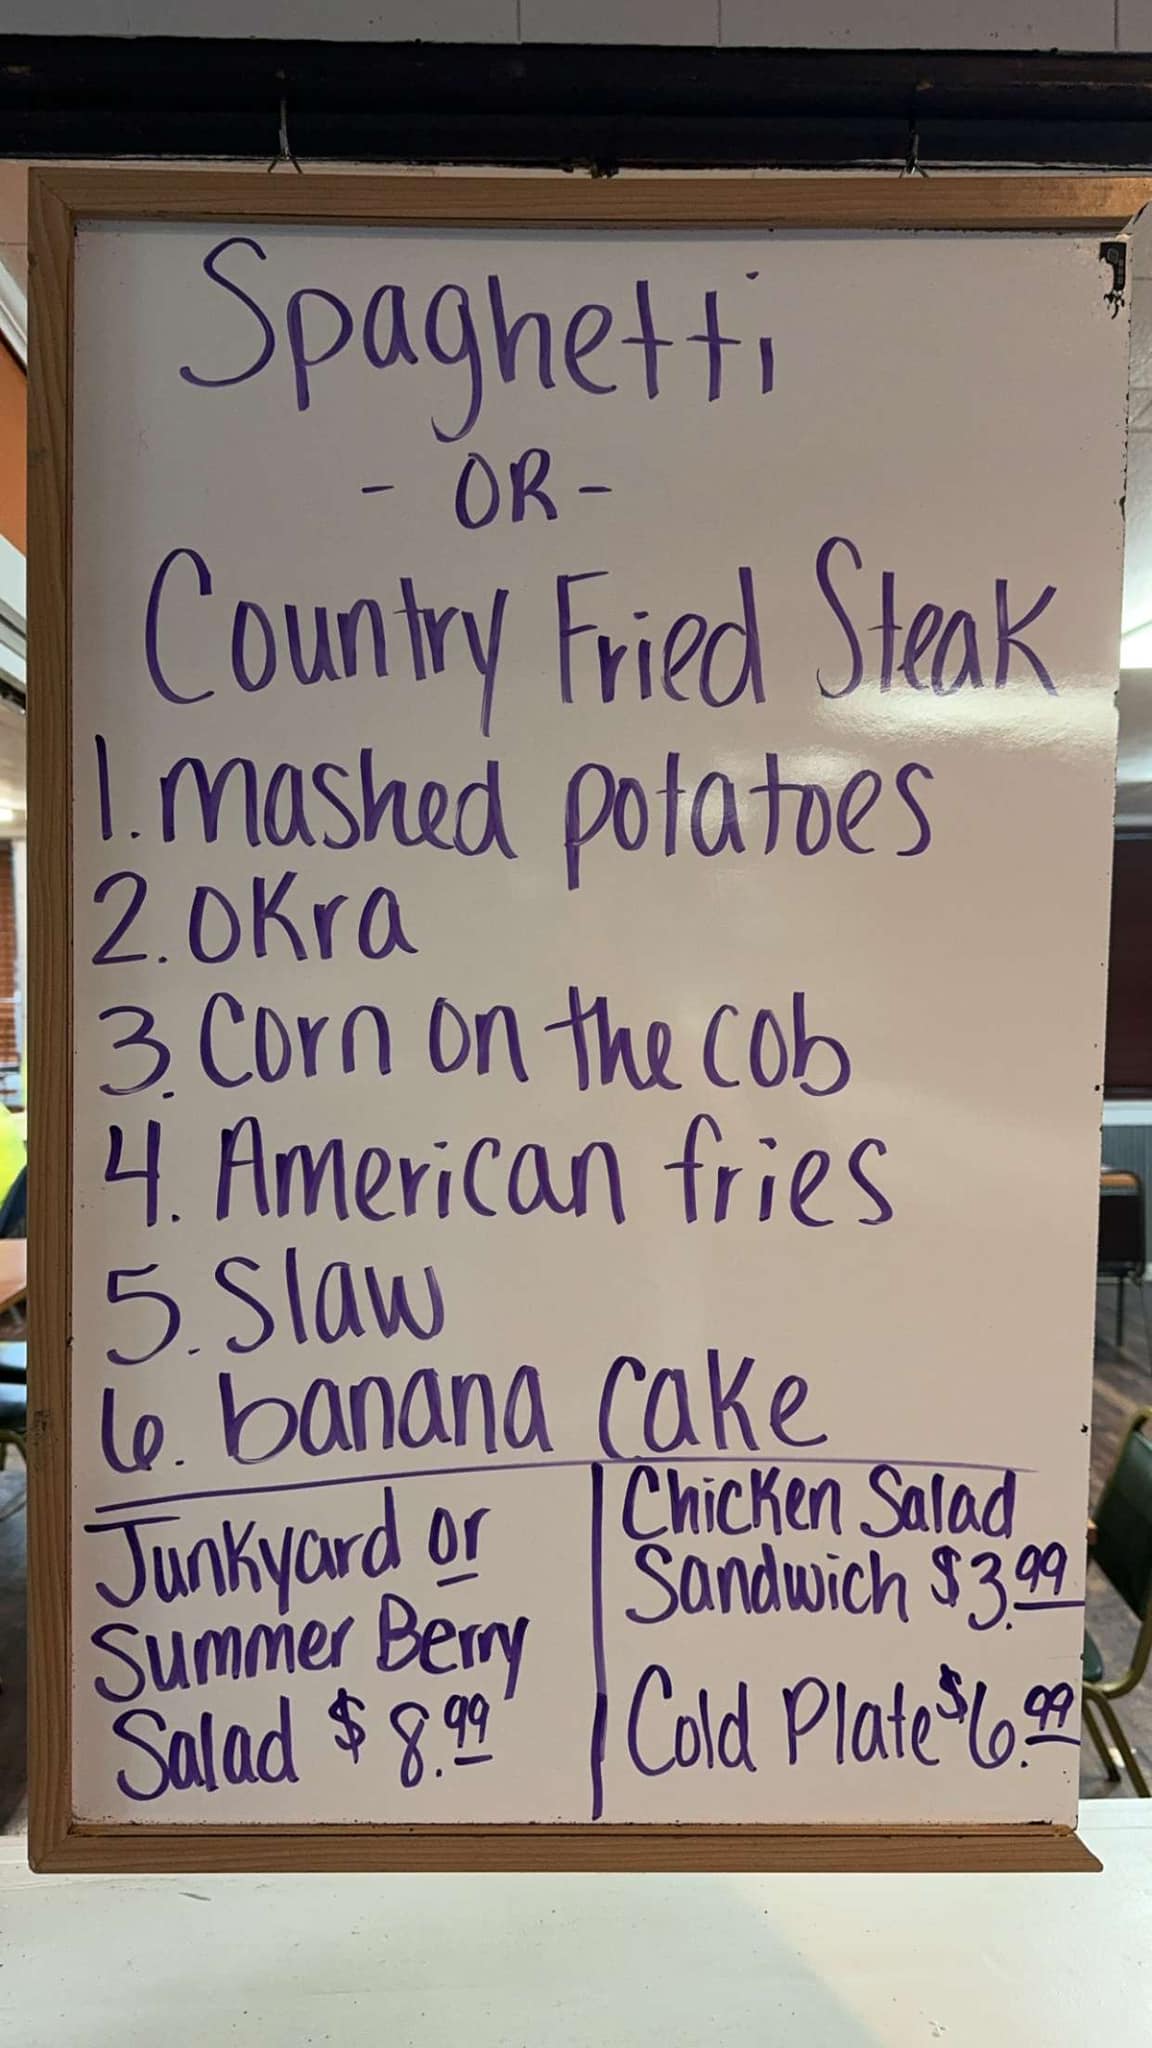 Spaghetti
- OR -
Country Fried Steak
1. mashed potatoes
2. okra
3. Corn on the cob
4. American fries
5. Slaw
6. banana cake
Junkyard or
Summer Berry
Salad $8.99
Chicken Salad
Sandwich $3.99
Cold Plate $6.99